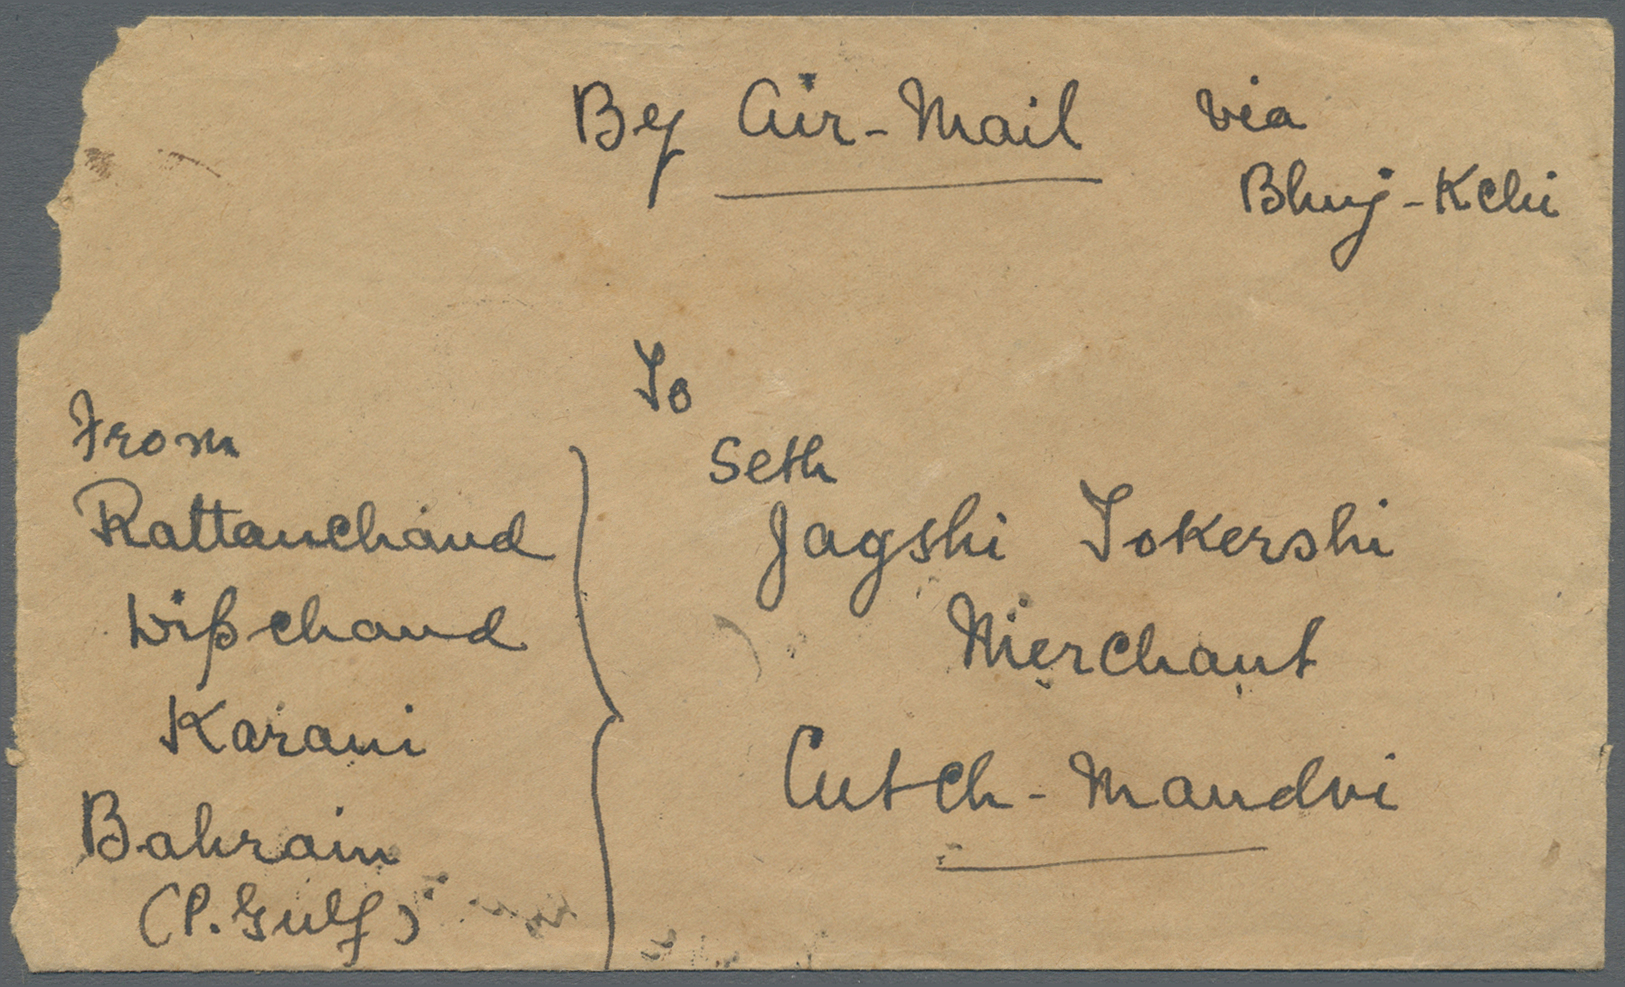 By Air-Mail via
Bhuj-Kchi
To
Seth
Jagshi Tokershi
Merchant
Cutch-Mandvi
From
Rattanchand
Dipchand
Karani
Bahrain
(P. Gulf)